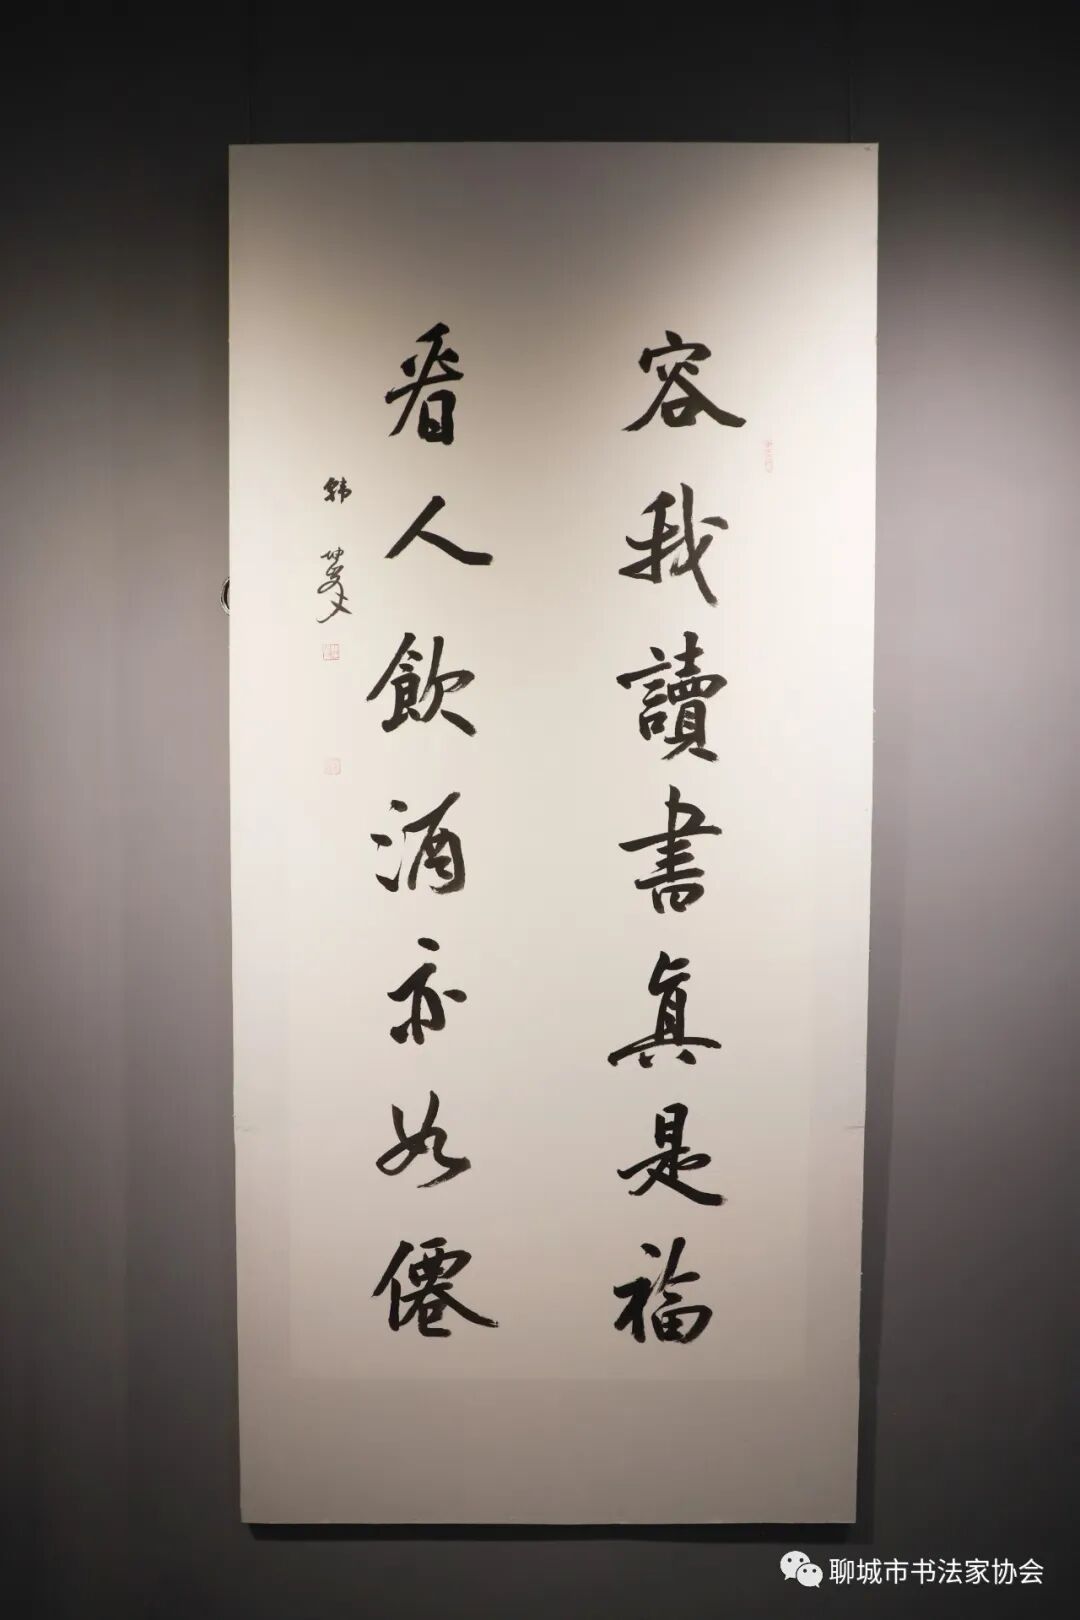 容我讀書真是福
看人飲酒亦如僊
韓
聊城市书法家协会